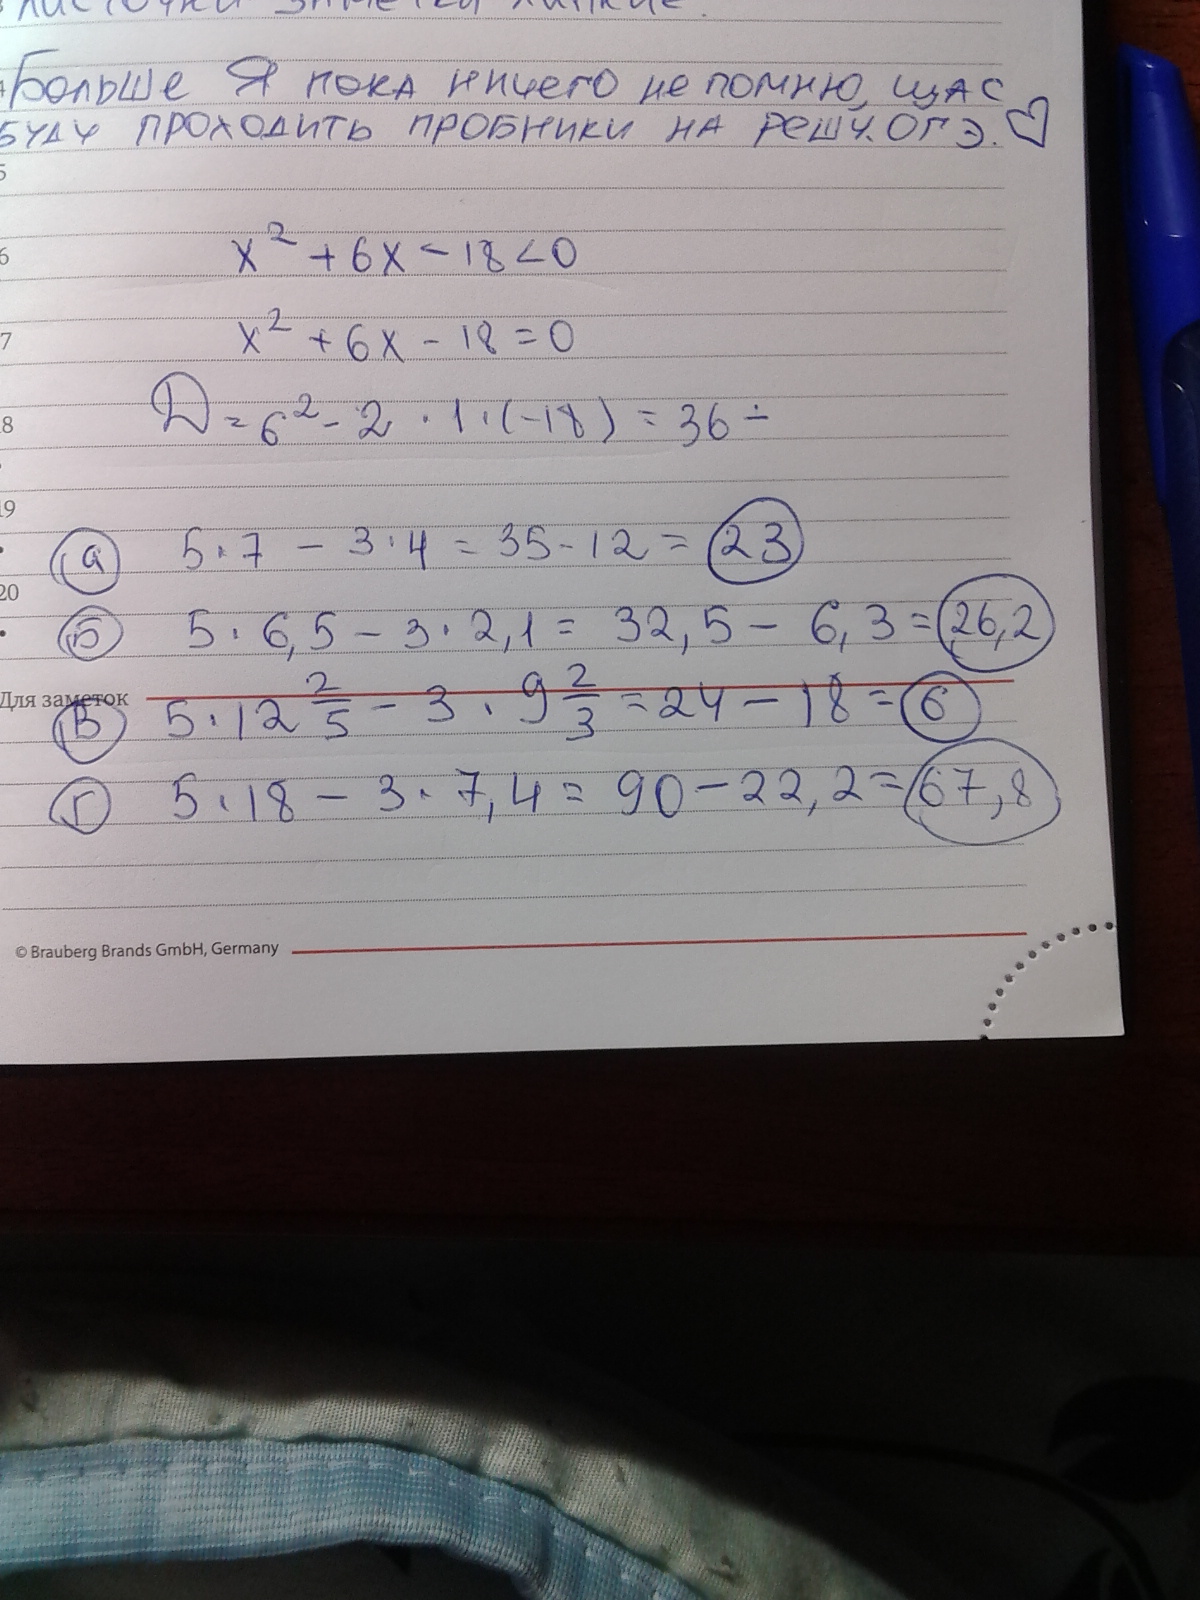 листочки заметки липкие.
Больше Я пока ничего не помню, щас
буду проходить пробники на решу.огэ. ♡
6
x² + 6x − 18 < 0
7
x² + 6x − 18 = 0
8
D = 6² − 2 · 1 · (−18) = 36 ÷
19
а 5 · 7 − 3 · 4 = 35 − 12 = 23
20
б 5 · 6,5 − 3 · 2,1 = 32,5 − 6,3 = 26,2
Для заметок
в 5 · 12 2/5 − 3 · 9 2/3 = 24 − 18 = 6
г 5 · 18 − 3 · 7,4 = 90 − 22,2 = 67,8
© Brauberg Brands GmbH, Germany